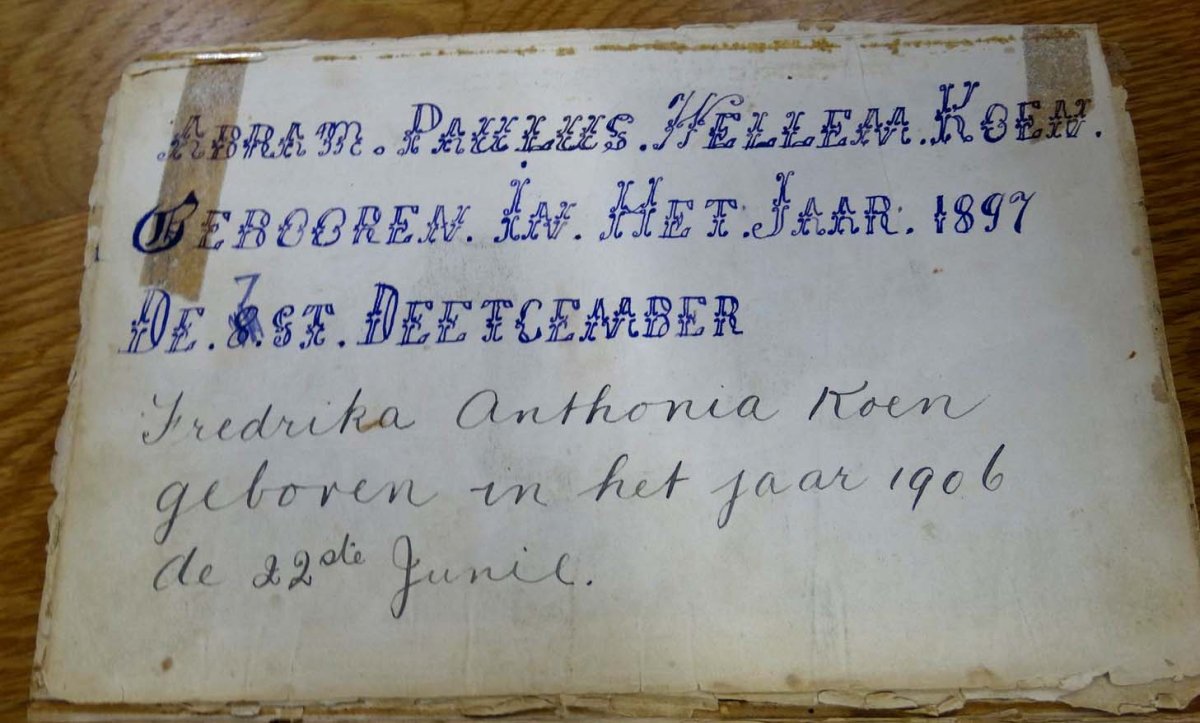 ABRAM. PAULUS. WELLEM. KOEN.
GEBOOREN. IN. HET. JAAR. 1897
DE. 7.ST. DEETCEMBER
Fredrika Anthonia Koen
geboren in het jaar 1906
de 22ste Junie.